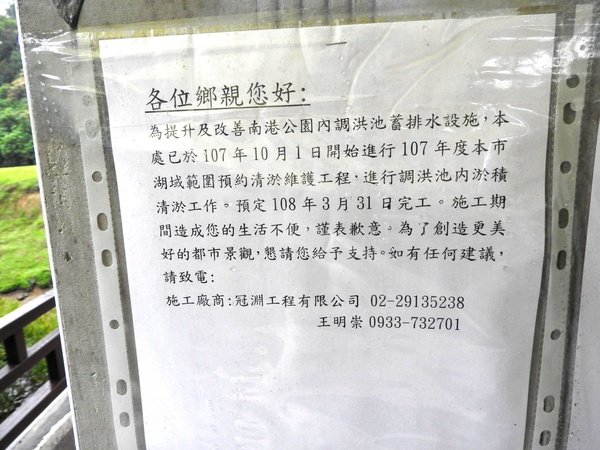 各位鄉親您好:
為提升及改善南港公園內調洪池蓄排水設施,本
處已於107年10月1日開始進行107年度本市
湖域範圍預約清淤維護工程,進行調洪池內淤積
清淤工作。預定108年3月31日完工。施工期
間造成您的生活不便,謹表歉意。為了創造更美
好的都市景觀,懇請您給予支持。如有任何建議,
請致電:
施工廠商:冠淵工程有限公司 02-29135238
王明崇 0933-732701